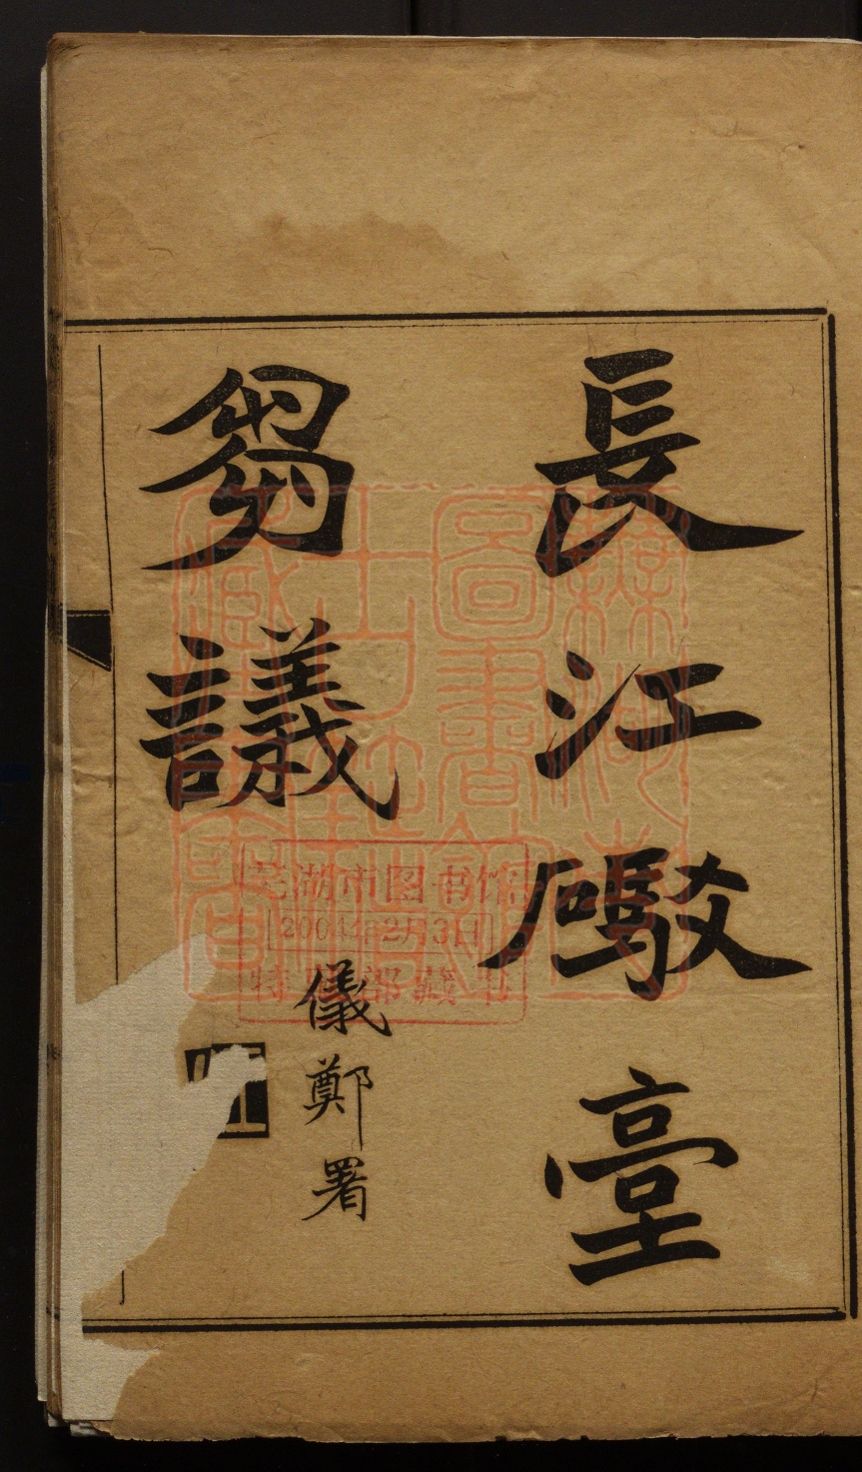 長江礮臺
芻議
儀鄭署
芜湖市图书馆
2004年2月3日
部藏书